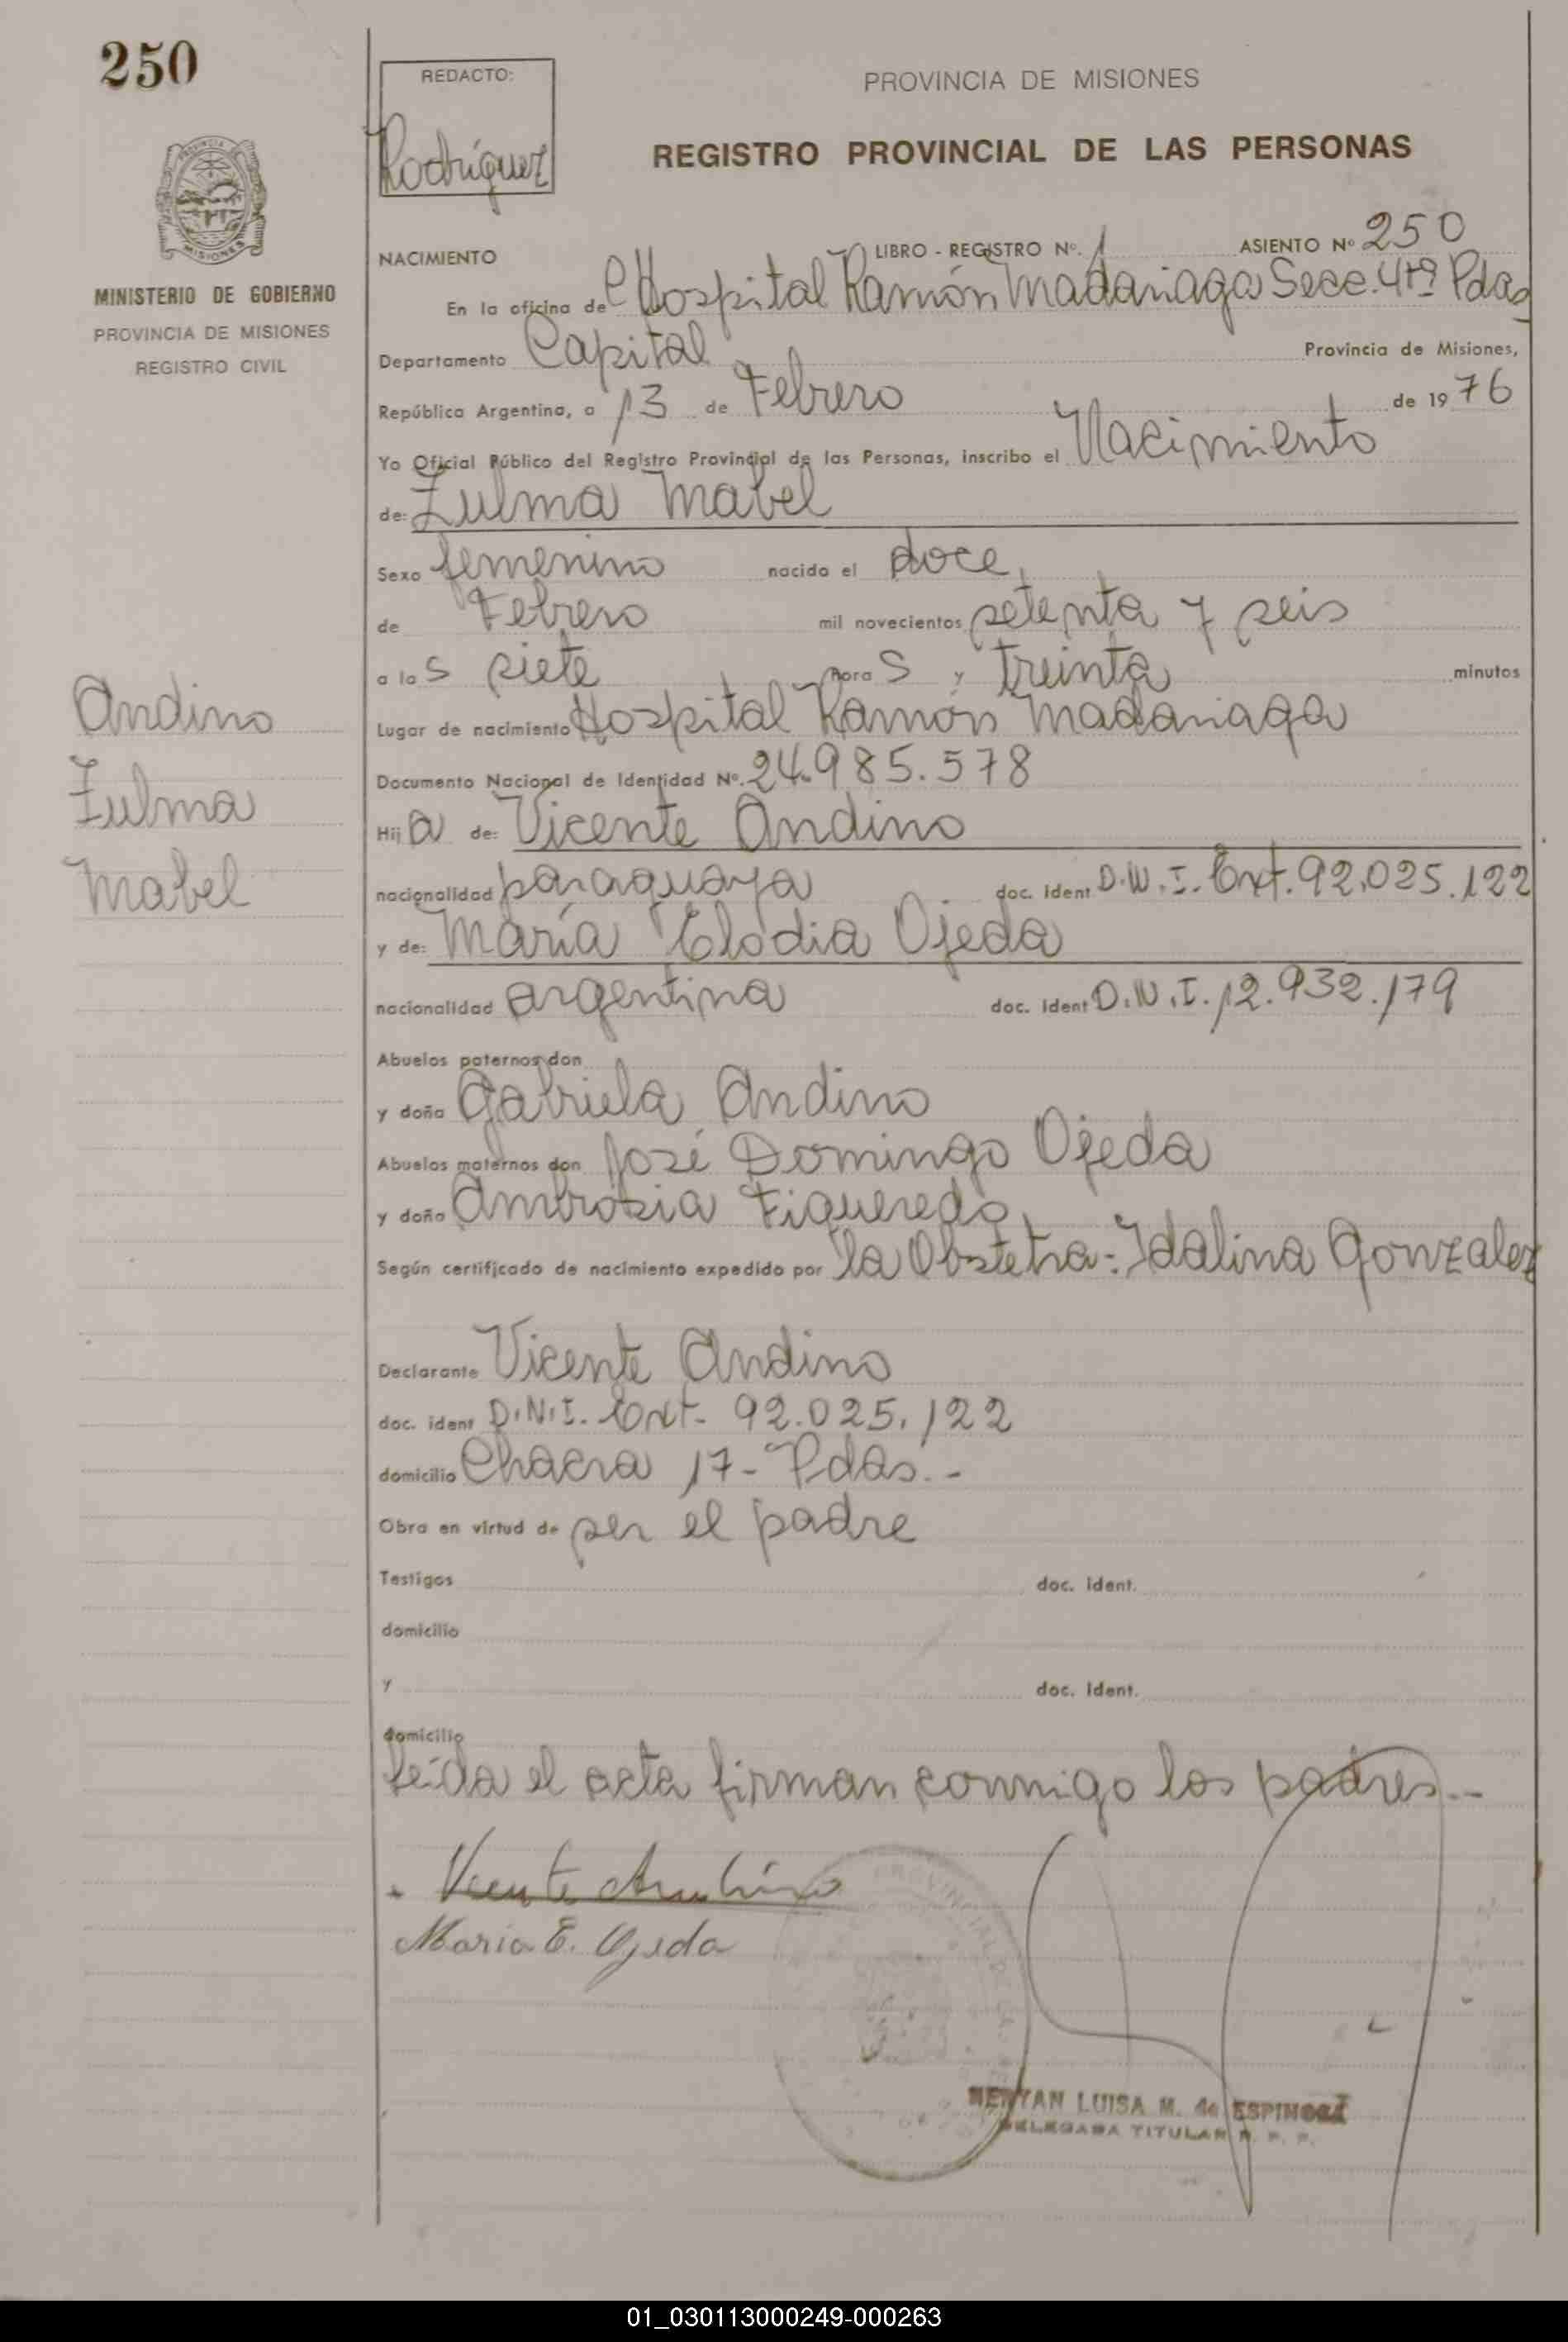 250
REDACTO:
Rodríguez
PROVINCIA DE MISIONES
REGISTRO PROVINCIAL DE LAS PERSONAS
MINISTERIO DE GOBIERNO
PROVINCIA DE MISIONES
REGISTRO CIVIL
NACIMIENTO LIBRO - REGISTRO Nº. 1 ASIENTO Nº 250
En la oficina de Hospital Ramón Madariaga Secc. 4tª Pdas
Departamento Capital Provincia de Misiones,
República Argentina, a 13 de Febrero de 1976
Yo Oficial Público del Registro Provincial de las Personas, inscribo el Nacimiento
de: Zulma Mabel
Sexo femenino nacido el doce
de Febrero mil novecientos setenta y seis
a las siete horas y treinta minutos
Lugar de nacimiento Hospital Ramón Madariaga
Documento Nacional de Identidad Nº. 24.985.578
Hija de: Vicente Andino
nacionalidad paraguaya doc. ident. D.N.I. Ext. 92.025.122
y de: María Elodia Ojeda
nacionalidad argentina doc. ident D.N.I. 12.932.179
Abuelos paternos don
y doña Gabriela Andino
Abuelos maternos don José Domingo Ojeda
y doña Ambrosia Figueredo
Según certificado de nacimiento expedido por la Obstetra: Idalina Gonzalez
Declarante Vicente Andino
doc. ident D.N.I. Ext- 92.025.122
domicilio Chacra 17- Pdas.-
Obra en virtud de ser el padre
Testigos doc. ident.
domicilio
y doc. ident.
domicilio
leída el acta firman conmigo los padres.-
Vicente Andino
Maria E. Ojeda
LUISA M. de ESPINOZA
DELEGADA TITULAR R. P. P.
Andino
Zulma
Mabel
01_030113000249-000263